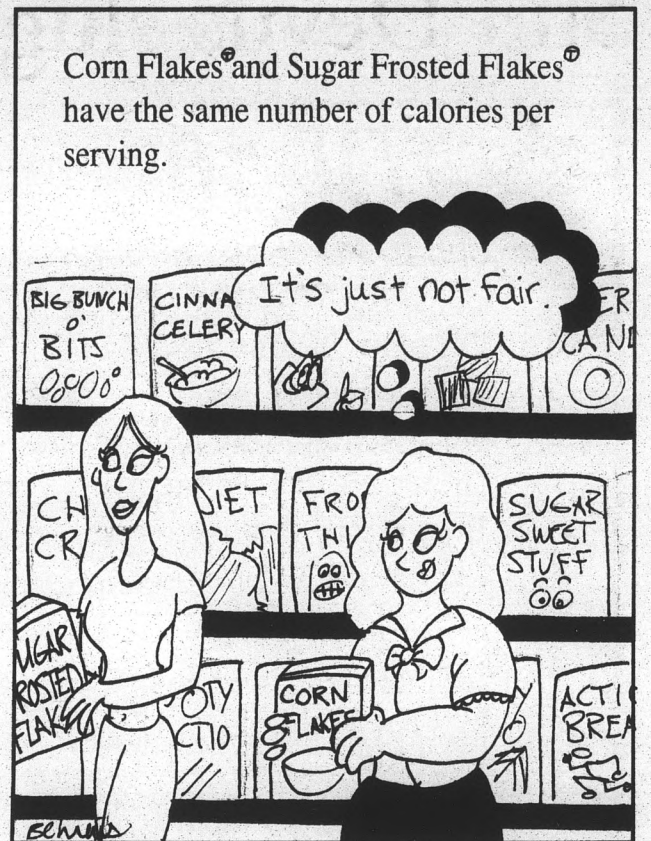 Corn Flakes Ⓣ and Sugar Frosted Flakes Ⓣ
have the same number of calories per
serving.
It's just not fair.
BIG BUNCH
O'
BITS
CINNA
CELERY
ER
CAN
CH
CR
DIET
FRO
THI
SUGAR
SWEET
STUFF
UGAR
ROSTED
FLAK
OTY
CTIO
CORN
FLAKES
ACTI
BREA